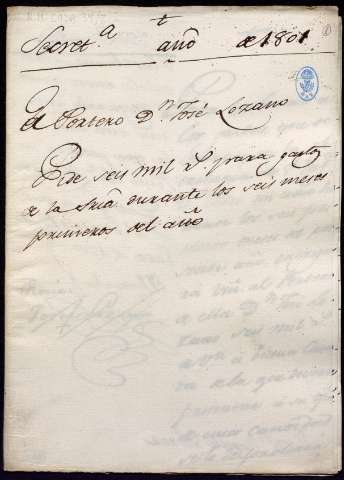 Secret.a año de 1801
El Portero D.n José Lozano
Pide seis mil r.s para gastos
de la Sria durante los seis meses
primeros del año